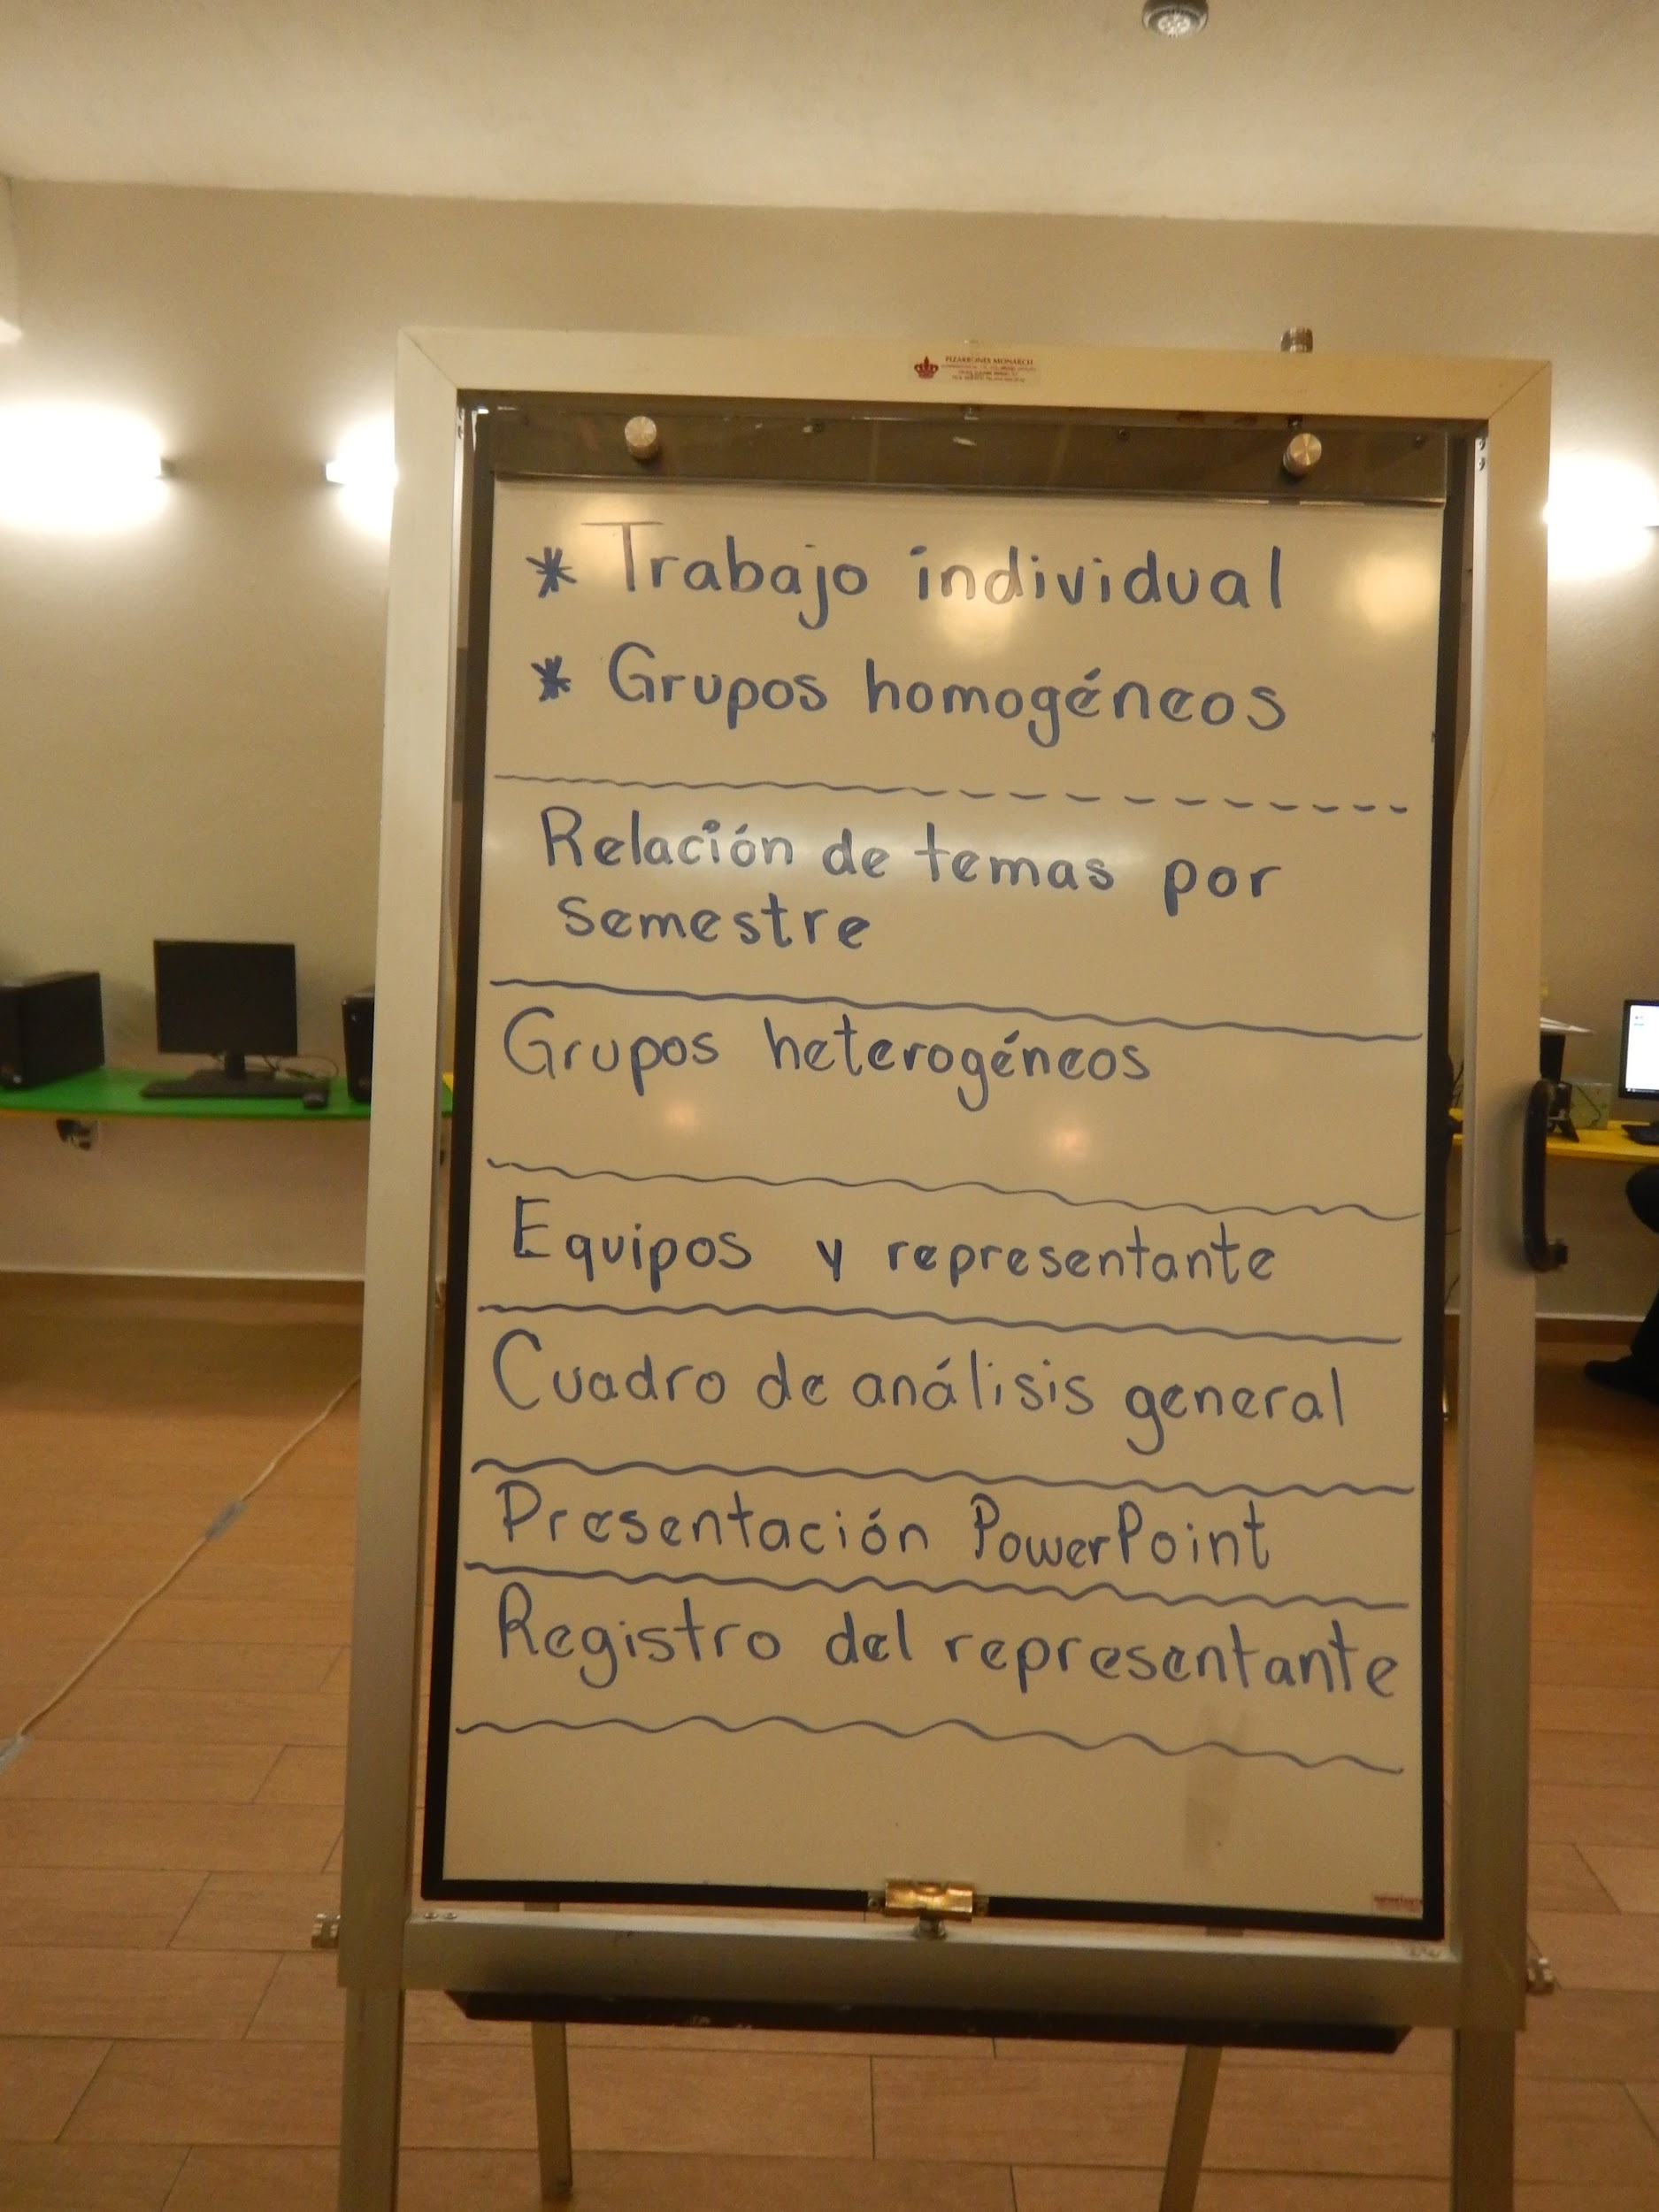 PIZARRONES MONARCH
* Trabajo individual
* Grupos homogéneos
Relación de temas por
semestre
Grupos heterogéneos
Equipos y representante
Cuadro de análisis general
Presentación PowerPoint
Registro del representante